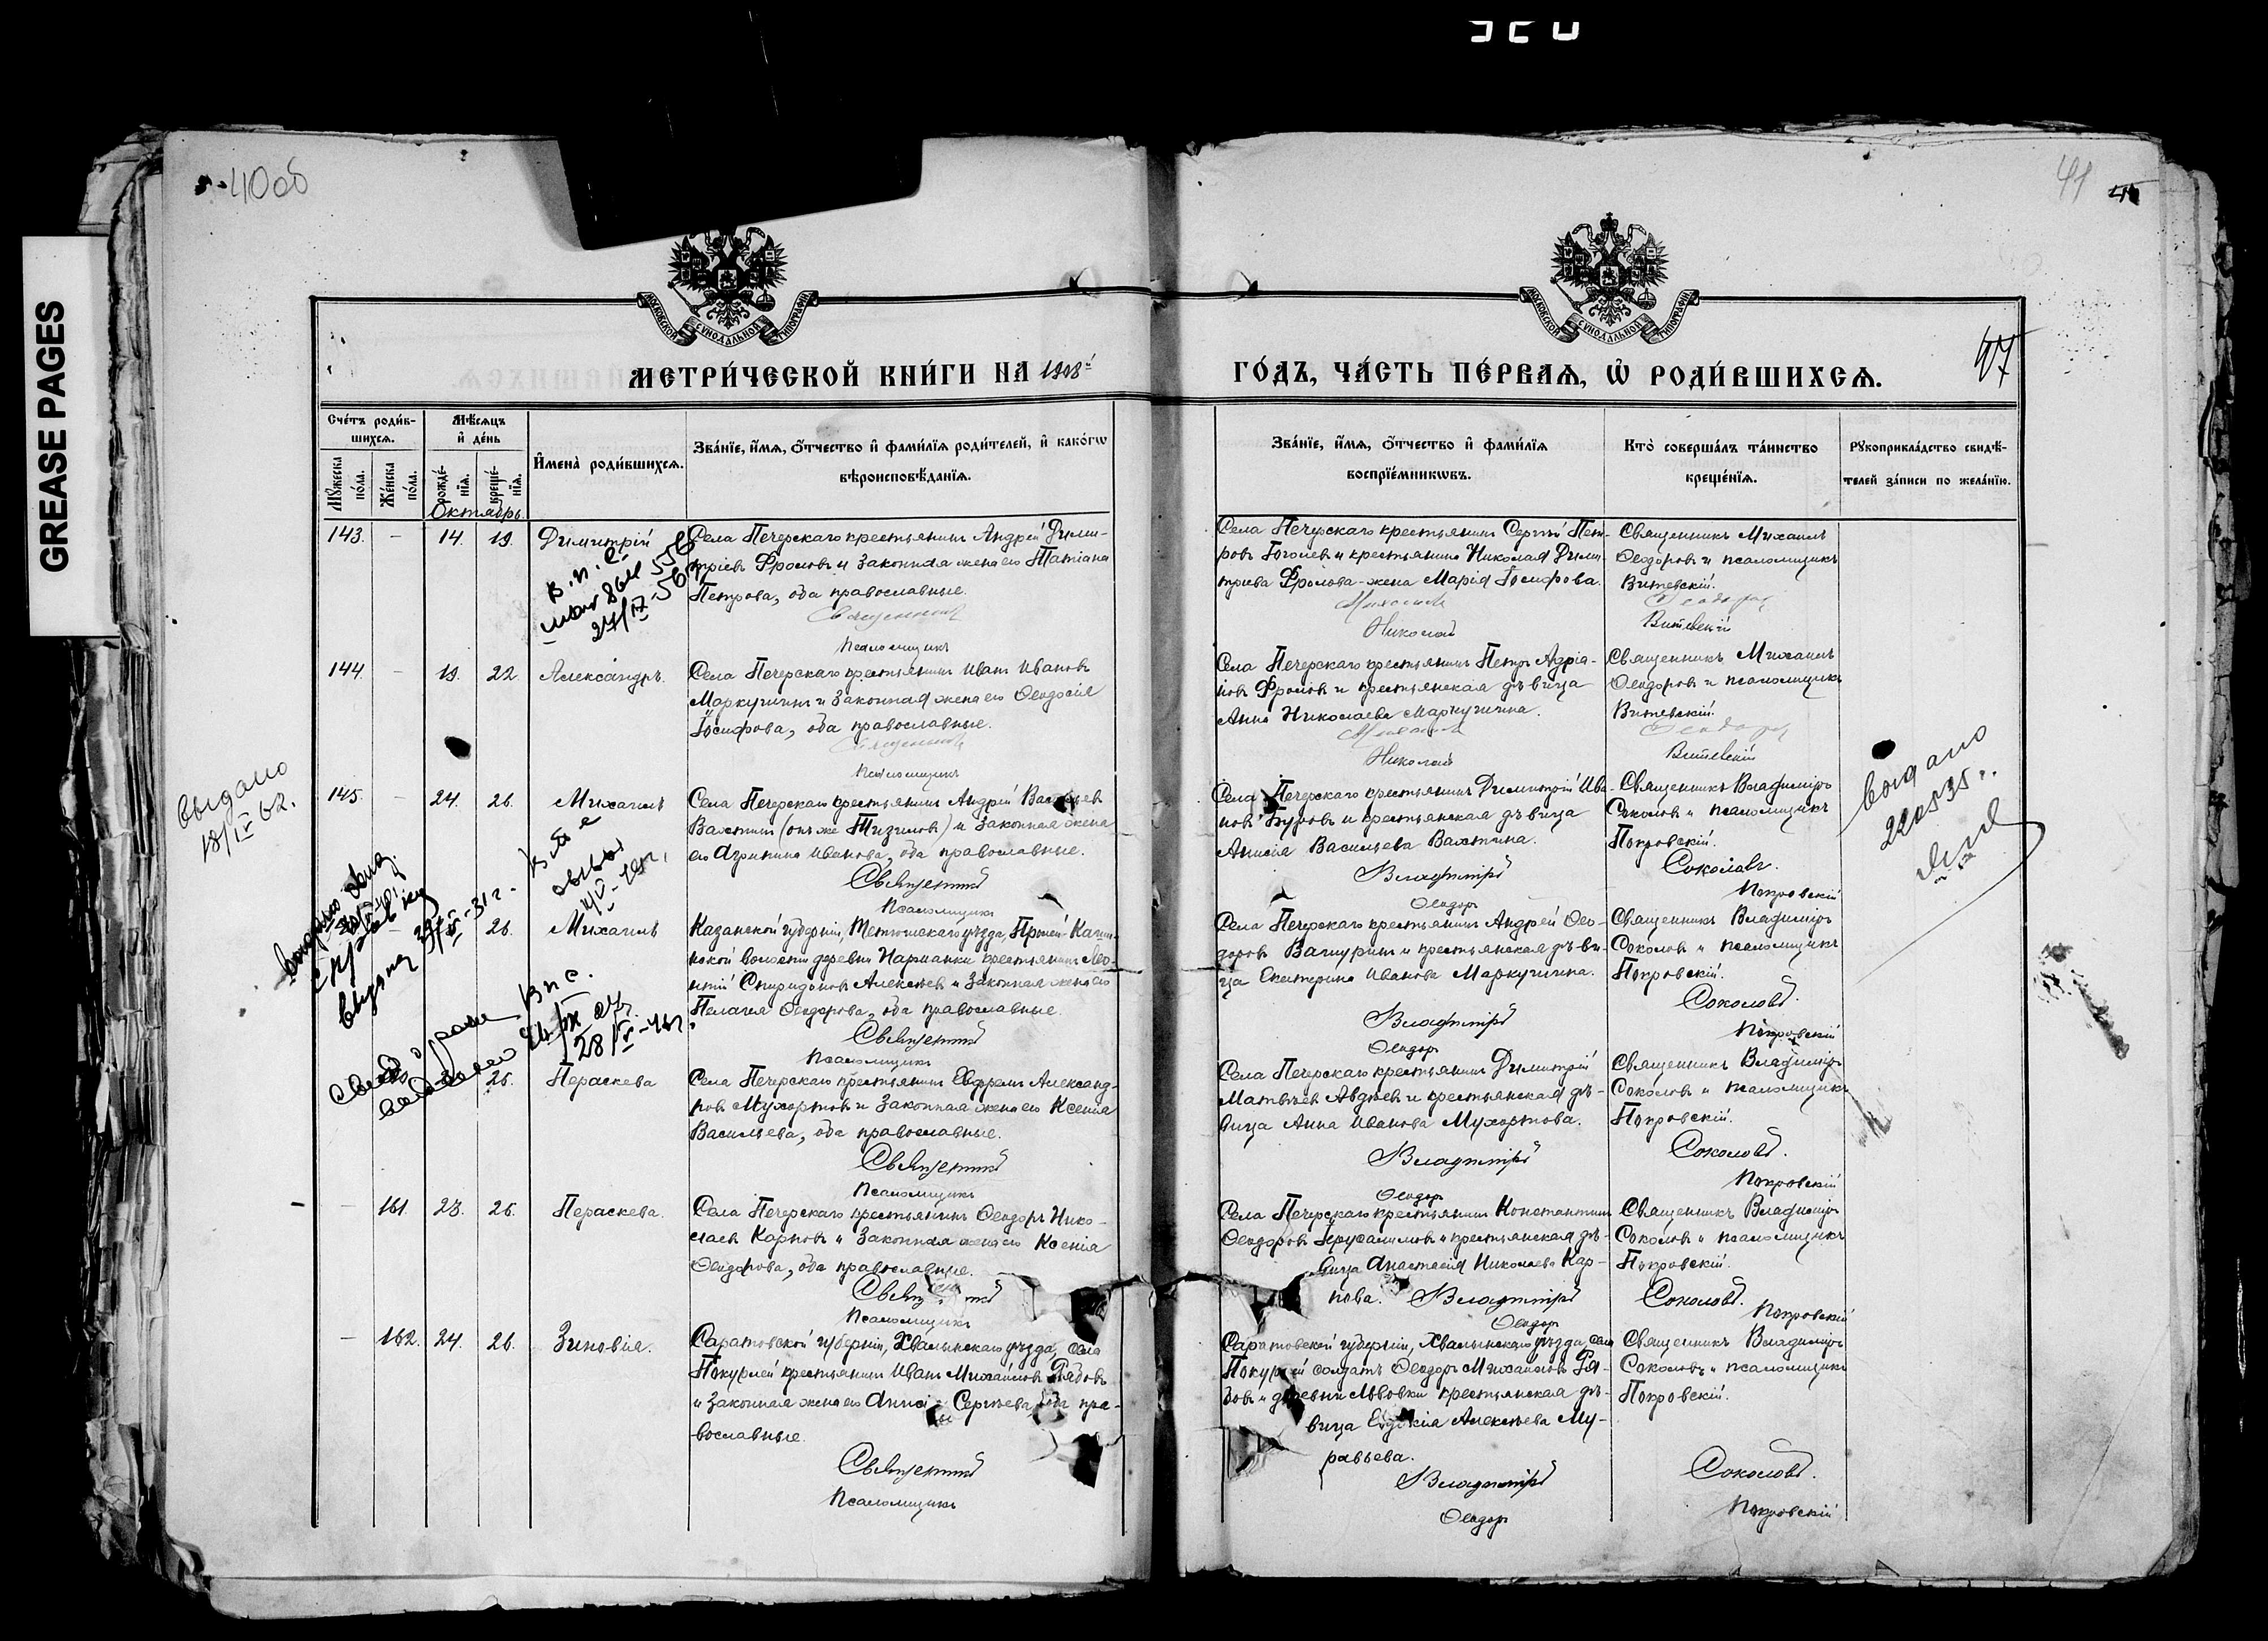 GREASE PAGES
40об
41
47
МОСКОВСКОЙ СѴНОДАЛЬНОЙ ТИПОГРАФІИ
МОСКОВСКОЙ СѴНОДАЛЬНОЙ ТИПОГРАФІИ
МЕТРИ́ЧЕСКОЙ КНИ́ГИ НА 1908й
ГО́ДЪ, ЧА́СТЬ ПЕ́РВАѦ, Ѡ҆ РОДИ́ВШИХСѦ.
Сче́тъ роди́в-
шихсѧ.
Мѣ́сѧцъ
и҆ де́нь
Мꙋ́жеска
по́ла.
Же́нска
по́ла.
рожде́-
нїѧ.
креще́-
нїѧ.
И҆мена̀ роди́вшихсѧ.
Зва́нїе, и҆́мѧ, ѻ҆́тчество и҆ фами́лїѧ роди́телей, и҆ како́гѡ
вѣроисповѣ́данїѧ.
Зва́нїе, и҆́мѧ, ѻ҆́тчество и҆ фами́лїѧ
воспрїе́мникѡвъ.
Кто̀ соверша́лъ та́инство
креще́нїѧ.
Рꙋкоприкла́дство свидѣ́-
телей за́писи по жела́нїю.
Октябрь.
143.
-
14.
19.
Димитрій
Села Печерскаго крестьянинъ Андрей Дими-
тріевъ Фроловъ и законная жена его Татіана
Петрова, оба православные.
Священникъ
Псаломщикъ
Села Печерскаго крестьянинъ Сергѣй Пет-
ровъ Гоголевъ и крестьянина Николая Дими-
тріева Фролова-жена Марія Іосифова.
Михаилъ
Николай
Священникъ Михаилъ
Ѳеодоровъ и псаломщикъ
Витевскій.
Ѳеодоровъ
Витевскій
144.
-
19.
22.
Александръ.
Села Печерскаго крестьянинъ Иванъ Ивановъ
Маркушинъ и законная жена его Ѳеодосія
Іосифова, оба православные.
Священникъ
Псаломщикъ
Села Печерскаго крестьянинъ Петръ Адріа-
новъ Фроловъ и крестьянская дѣвица
Анна Николаева Маркушина.
Михаилъ
Николай
Священникъ Михаилъ
Ѳеодоровъ и псаломщикъ
Витевскій.
Ѳеодоровъ
Витевскій
выдано
18/IV 62.
145.
-
24.
26.
Михаилъ
Села Печерскаго крестьянинъ Андрей Васильевъ
Вахтинъ (онъ же Тизиловъ) и законная жена
его Агрипина Иванова, оба православные.
Священникъ
Псаломщикъ
Села Печерскаго крестьянинъ Димитрій Ива-
новъ Буровъ и крестьянская дѣвица
Анисія Васильева Вахтина.
Владиміръ
Ѳеодоръ
Священникъ Владиміръ
Соколовъ и псаломщикъ
Покровскій.
Соколовъ.
Покровскій
выдано
26.
Михаилъ
Казанской губерніи, Тетюшскаго уѣзда,
деревни Нармонки крестьянинъ Лео-
нтій Спиридоновъ Алексѣевъ и законная жена его
Пелагея Ѳеодорова, оба православные.
Священникъ
Псаломщикъ
Села Печерскаго крестьянинъ Андрей Ѳео-
доровъ Вашуринъ и крестьянская дѣви-
ца Екатерина Иванова Маркушина.
Владиміръ
Ѳеодоръ
Священникъ Владиміръ
Соколовъ и псаломщикъ
Покровскій.
Соколовъ.
Покровскій
26.
Параскева
Села Печерскаго крестьянинъ Евфремъ Александ-
ровъ Мухортовъ и законная жена его Ксенія
Васильева, оба православные.
Священникъ
Псаломщикъ
Села Печерскаго крестьянинъ Димитрій
Матвѣевъ Авдѣевъ и крестьянская дѣ-
вица Анна Иванова Мухортова.
Владиміръ
Ѳеодоръ
Священникъ Владиміръ
Соколовъ и псаломщикъ
Покровскій.
Соколовъ.
Покровскій
-
161.
23.
26.
Параскева.
Села Печерскаго крестьянинъ Ѳеодоръ Нико-
лаевъ Карповъ и законная жена его Ксенія
Ѳеодорова, оба православные.
Священникъ
Псаломщикъ
Села Печерскаго крестьянинъ Константинъ
Ѳеодоровъ Іерусалимовъ и крестьянская дѣ-
вица Анастасія Николаева Кар-
пова. Владиміръ
Ѳеодоръ
Священникъ Владиміръ
Соколовъ и псаломщикъ
Покровскій.
Соколовъ.
Покровскій
-
162.
24.
26.
Зиновія.
Саратовской губерніи, Хвалынскаго уѣзда, села
Покурлей крестьянинъ Иванъ Михаиловъ Рябовъ
и законная жена его Анна Сергѣева, оба пра-
вославные.
Священникъ
Псаломщикъ
Саратовской губерніи, Хвалынскаго уѣзда, села
Покурлей солдатъ Ѳеодоръ Михаиловъ Ря-
бовъ и деревни Львовки крестьянская дѣ-
вица Евдокія Алексѣева Му-
равьева.
Владиміръ
Ѳеодоръ
Священникъ Владиміръ
Соколовъ и псаломщикъ
Покровскій.
Соколовъ.
Покровскій